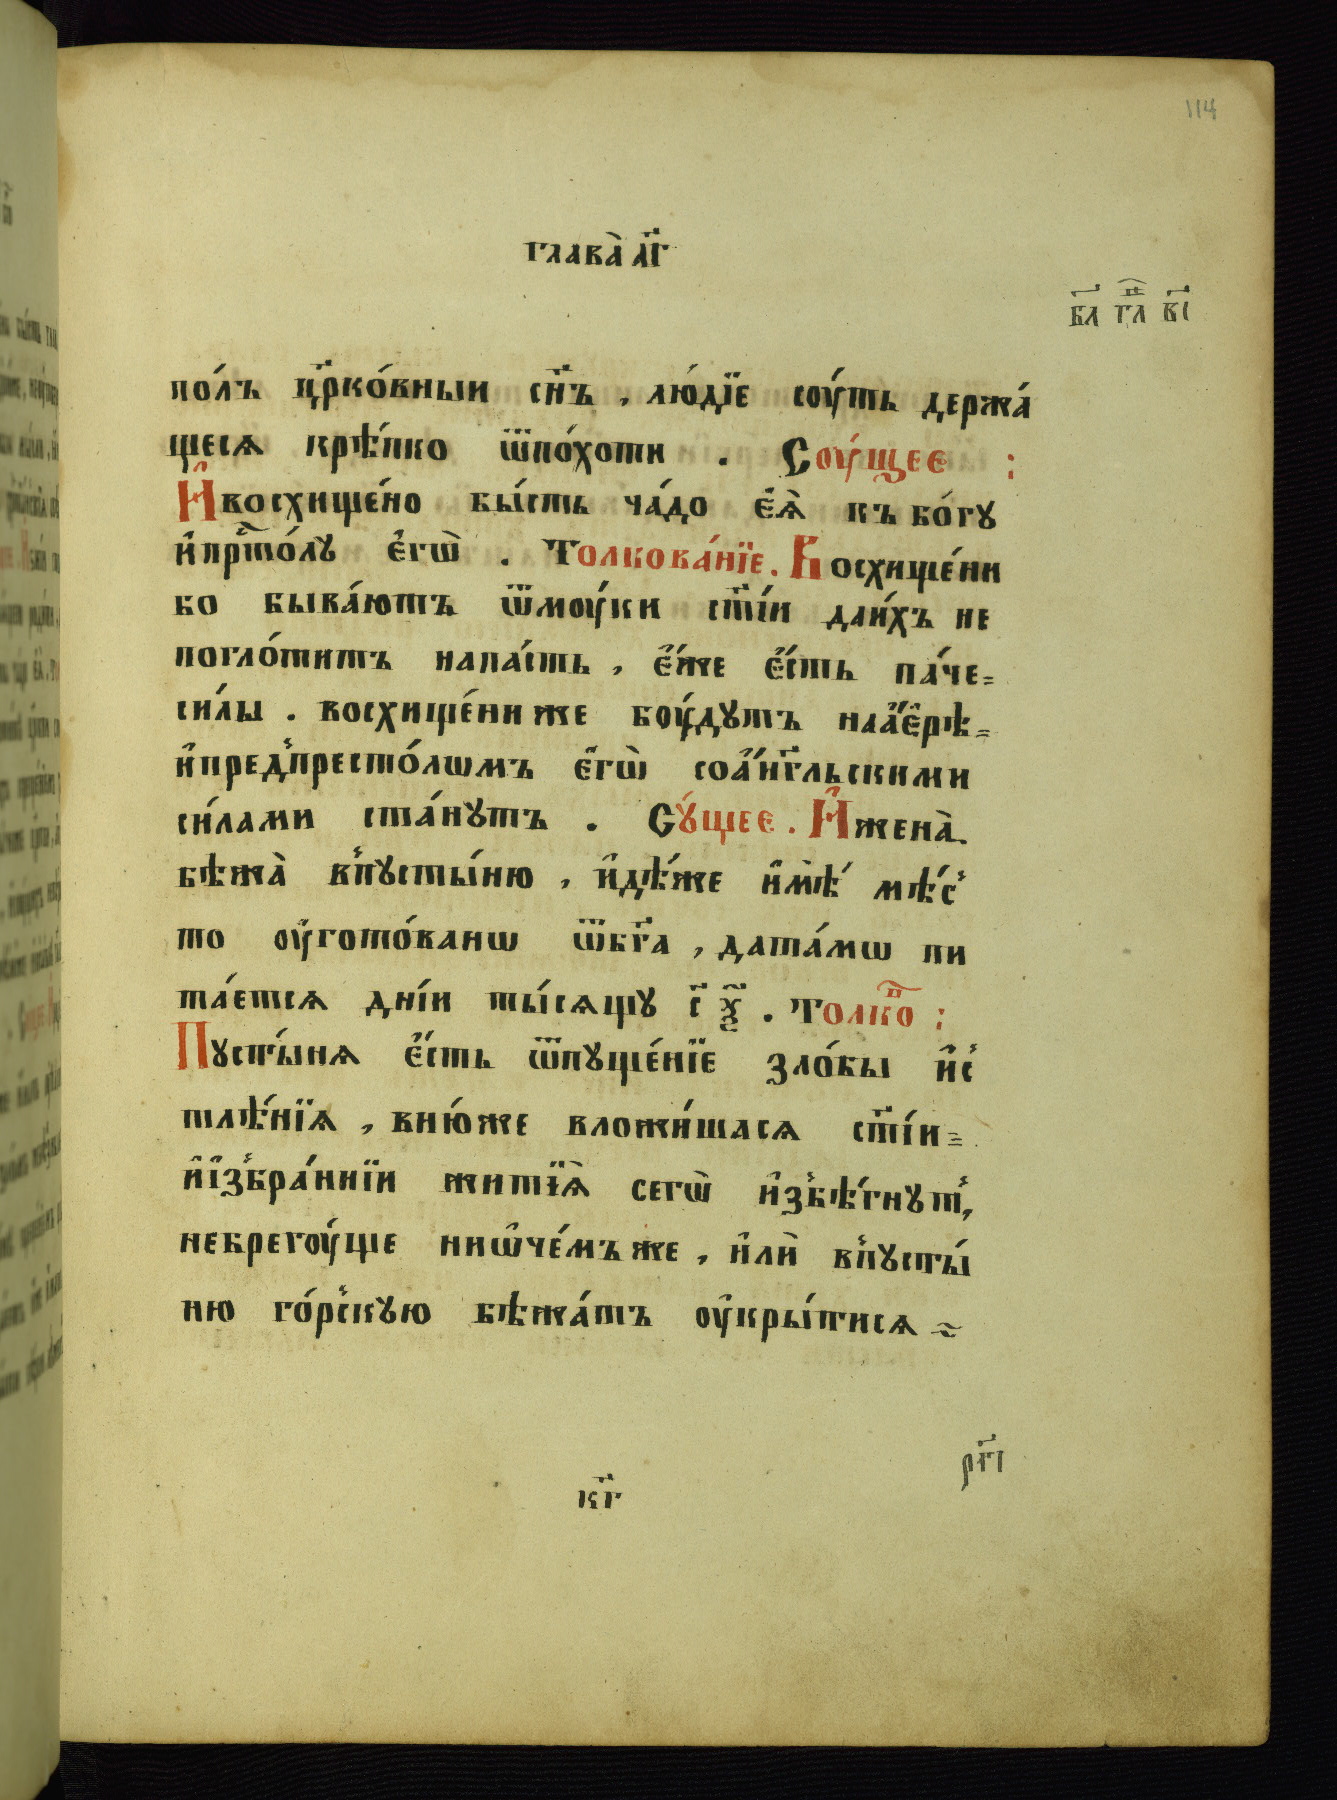 114
глава̀ л҃г
бл гл в҃і
по́лъ цр҃ко́вныи сн҃ъ , лю́дїе соу́ть держа́
щеся крѣ́пко ѿпо́хоти . Соу́щее :
И҆восхище́но бы́сть ча́до є҆ѧ̀ къ бо́гу
и҆прⷭ҇то́лу є҆гѡ̀ . Толкова́нїе . Восхище́ни
бо быва́ютъ ѿмоу́ки ст҃і́и даи́хъ не
погло́титъ напа́сть , є҆́же є҆́сть па́че=
си́лы . восхище́ни же боу́дутъ наа҆є҆рѣ=
и҆предпресто́лѡмъ є҆гѡ̀ соа҆́нг҃льскими
си́лами ста́нутъ . Су́щее . И҆жена̀
бѣжа̀ впусты́ню , и҆дѣ́же и҆мѣ̀ мѣ́с
то оу҆гото́ванѡ ѿбг҃а , дата́мѡ пи
та́етсѧ дні́и ты́сѧщу с҃ ѯ҃ . Толкⷪ :
Пусты́нѧ є҆́сть ѿпуще́нїе ѕло́бы и҆с
тлѣ́нїѧ , вню́же вложи́шасѧ ст҃і́и=
и҆і҆збра́ннїи житїѧ̀ сегѡ̀ и҆збѣ́гнут,
небрегоу́ще ниѡ҆че́мъ же , и҆лѝ впусты́
ню го́рскую бѣжа́тъ оу҆кры́тисѧ =
к҃г
рг҃і